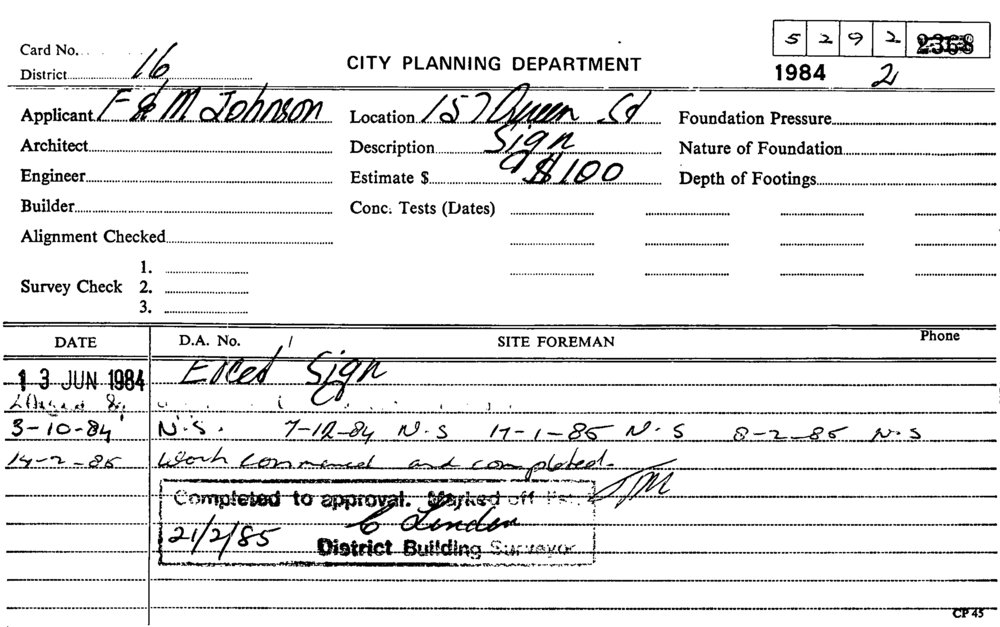 5 2 9 2 2368
Card No.
CITY PLANNING DEPARTMENT
District 16
1984 2
Applicant F & M Johnson
Location 157 Queen St
Foundation Pressure
Architect
Description Sign
Nature of Foundation
Engineer
Estimate $ $100
Depth of Footings
Builder
Conc. Tests (Dates)
Alignment Checked
1.
Survey Check 2.
3.
DATE D.A. No. / SITE FOREMAN Phone
13 JUN 1984 Erect Sign
3-10-84 N.S. 7-12-84 N.S 17-1-85 N.S 8-2-85 N.S
14-2-85 Work commenced and completed.
Completed to approval. Marked off list.
21/2/85
District Building Surveyor
CP 45